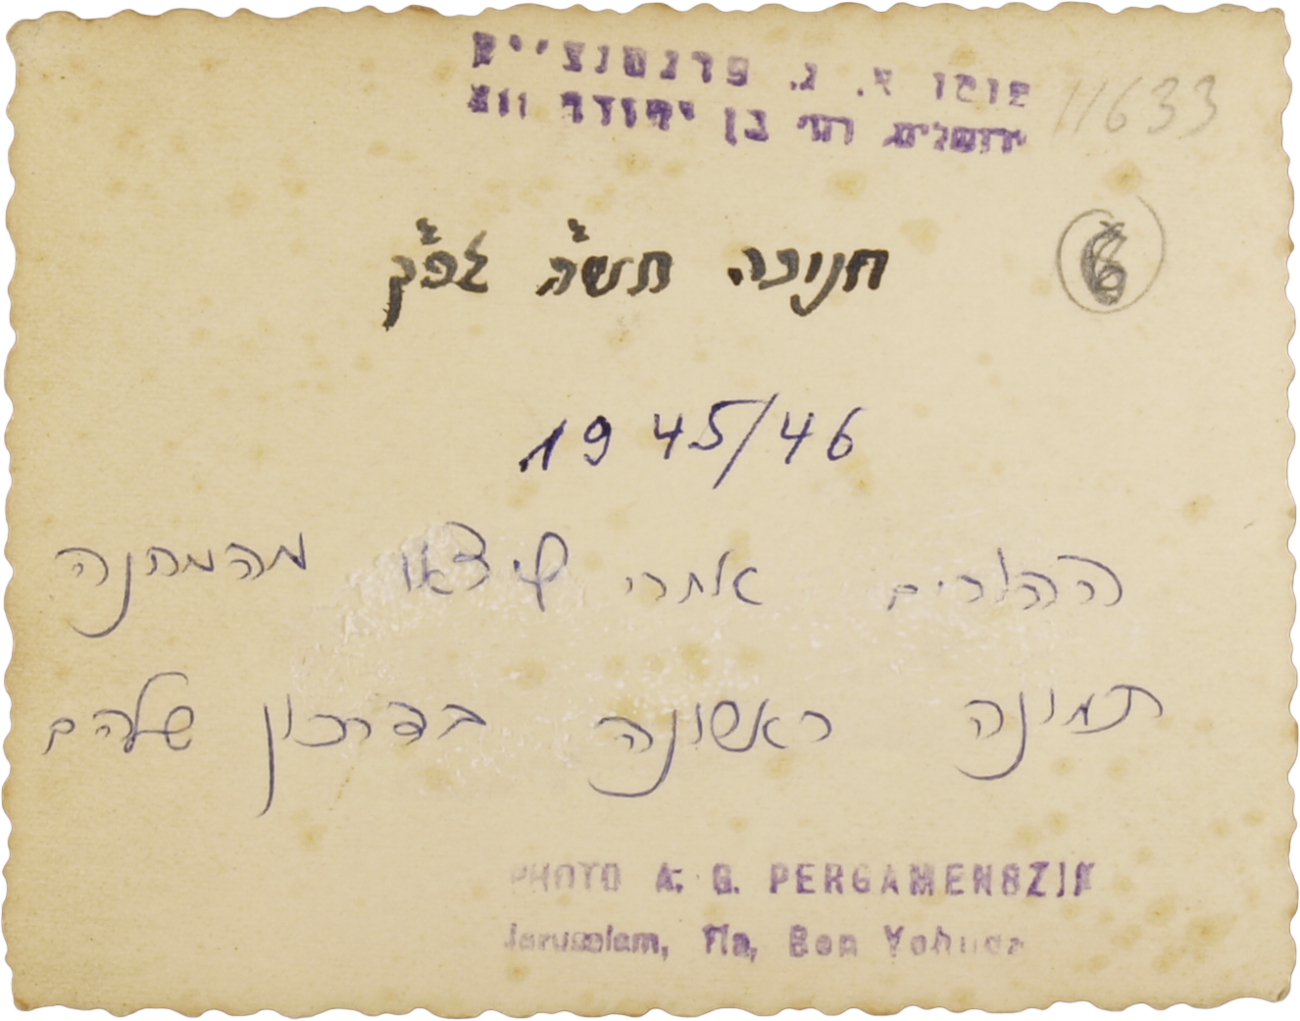 פוטו א. ג. פרגמנצ'יק
ירושלים, רח' בן יהודה 11א
11633
6
חנוכה תש"ה לפ"ק
1945/46
ההורים אחרי שיצאו מהמחנה
תמונה ראשונה בדרכון שלהם
PHOTO A. G. PERGAMENSZIK
Jerusalem, 11a, Ben Yehuda